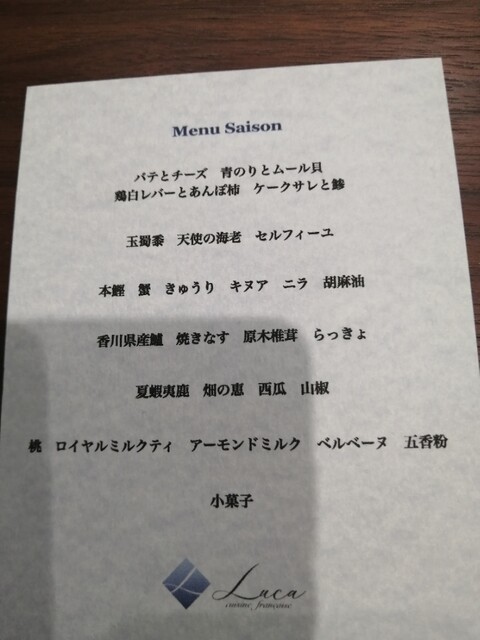 Menu Saison
パテとチーズ　青のりとムール貝
鶏白レバーとあんぽ柿　ケークサレと鯵
玉蜀黍　天使の海老　セルフィーユ
本鰹　蟹　きゅうり　キヌア　ニラ　胡麻油
香川県産鱸　焼きなす　原木椎茸　らっきょ
夏蝦夷鹿　畑の恵　西瓜　山椒
桃　ロイヤルミルクティ　アーモンドミルク　ベルベーヌ　五香粉
小菓子
Luca
cuisine française